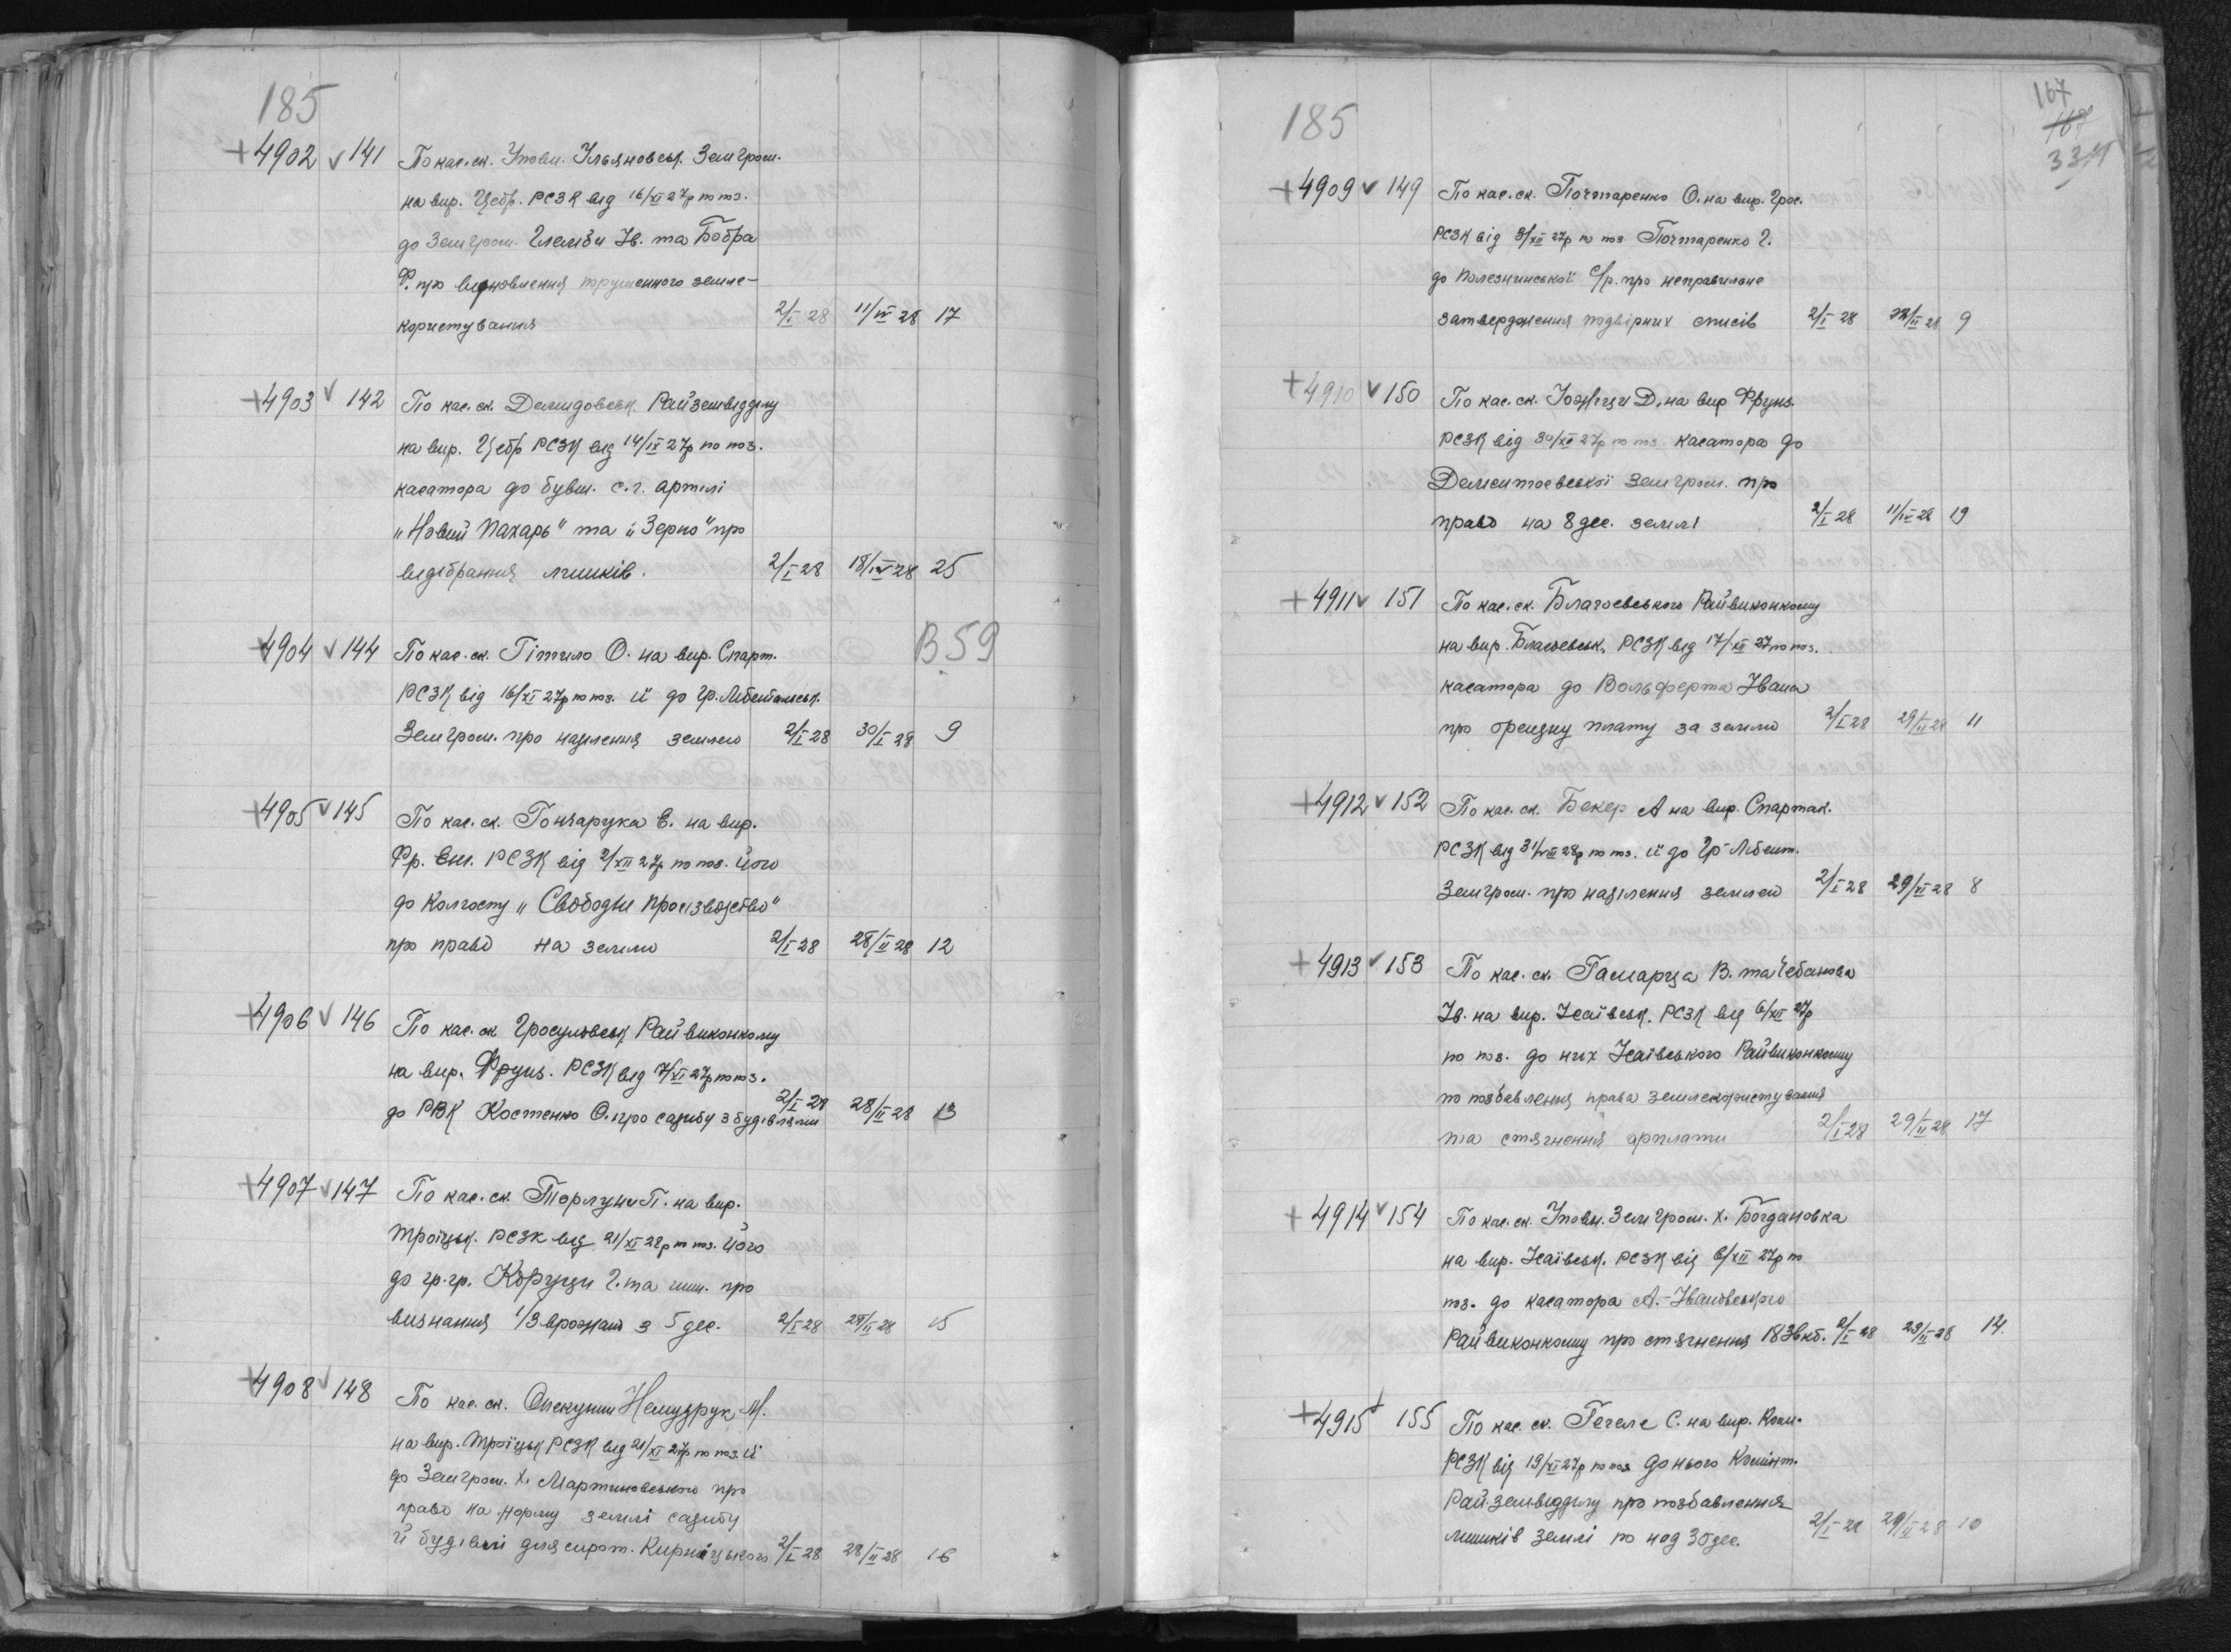 185
+4902 v 141 По кас. ск. Уповн. Ульяновськ. Земгром.
на вир. Цебр. РСЗК від 16/XI 27р по поз.
до Земгром. Глемби Ів. та Бобра
Ф. про відновлення порушенного земле-
користування 2/I 28 11/IV 28 17
+4903 v 142 По кас. ск. Демидовськ. Райземвідділу
на вир. Цебр РСЗК від 14/IX 27р по поз.
касатора до бувш. с.г. артілі
„Новий Пахарь" та „Зерно" про
відібрання лишків. 2/I 28 18/IV 28 25
+4904 v 144 По кас. ск. Гітило О. на вир. Спарт. В 59
РСЗК від 16/XI 27р по поз. її до Гр. Лібентальськ.
Земгром. про наділення землею 2/I 28 30/I 28 9
+4905 v 145 По кас. ск. Гончарука Є. на вир.
Фр. Енг. РСЗК від 2/XII 27р по поз. його
до Колгоспу „Свободне производство"
про право на землю 2/I 28 28/II 28 12
+4906 v 146 По кас. ск. Гросуловськ Райвиконкому
на вир. Фрунз. РСЗК від 17/XI 27р по поз.
до РВК Костенко О. про садибу з будівлями 2/I 28 28/II 28 13
+4907 v 147 По кас. ск. Торлуни П. на вир.
Троїцьк. РСЗК від 21/XI 28р по поз. його
до гр.гр. Коруци Г. та инш. про
визнання 1/3 врожаю з 5 дес. 2/I 28 29/II 28 15
+4908 v 148 По кас. ск. Опекунши Немудрук М.
на вир. Троїцьк РСЗК від 21/XI 27р по поз. її
до Земгром. х. Мартиновського про
право на норму землі садибу
й будівлі для сирот. Кирницького 2/I 28 28/II 28 16
185
167
167
334
+4909 v 149 По кас. ск. Почтаренко О. на вир. Грос.
РСЗК від 8/XII 27р по поз Почтаренко Г.
до Полезнинської с/р. про неправильне
затвердження подвірних списів 2/I 28 28/II 28 9
+4910 v 150 По кас. ск. Іожици Д. на вир Фрунз.
РСЗК від 30/XI 27р по поз касатора до
Дементоевської Земгром. про
право на 8 дес. землі 2/I 28 11/IV 28 19
+4911 v 151 По кас. ск. Благоєвського Райвиконкому
на вир. Благоєвськ. РСЗК від 17/XII 27 по поз.
касатора до Вольферта Івана
про орендну плату за землю 2/I 28 29/II 28 11
+4912 v 152 По кас. ск. Бекер А на вир. Спартак.
РСЗК від 31/VIII 28р по поз. її до Гр-Лібент.
Земгром. про наділення землею 2/I 28 29/II 28 8
+4913 v 153 По кас. ск. Гамарца В. та Чебанова
Ів. на вир. Ісаївськ. РСЗК від 6/XII 27р
по поз. до них Ісаївського Райвиконкому
по позбавлення права землекористування
та стягнення орплати 2/I 28 29/II 28 17
+4914 v 154 По кас. ск. Уповн. Земгром. х. Богдановка
на вир. Ісаївськ. РСЗК від 6/XII 27р по
поз. до касатора А.-Івановського
Райвиконкому про стягнення 183 вкб. 2/I 28 29/II 28 14
+4915 v 155 По кас. ск. Гегеле С. на вир. Комн.
РСЗК від 19/XI 27р по поз до нього Комінт.
Райземвідділу про позбавлення
лишків землі по над 30 дес. 2/I 28 29/II 28 10